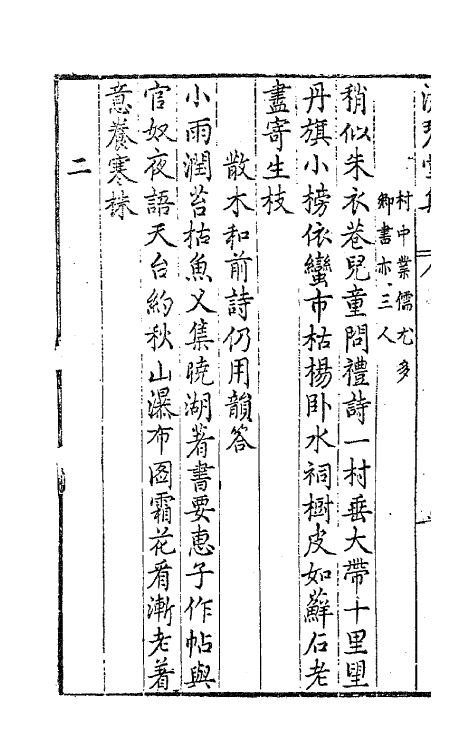 村中業儒尤多
鄉書亦三人
稍似朱衣巷兒童問禮詩一村垂大帶十里望
丹旗小榜依蠻市枯楊卧水祠樹皮如蘚石老
盡寄生枝
散木和前詩仍用韻答
小雨潤苔枯魚叉集曉湖著書要惠子作帖與
官奴夜語天台約秋山瀑布圖霜花看漸老着
意養寒株
二